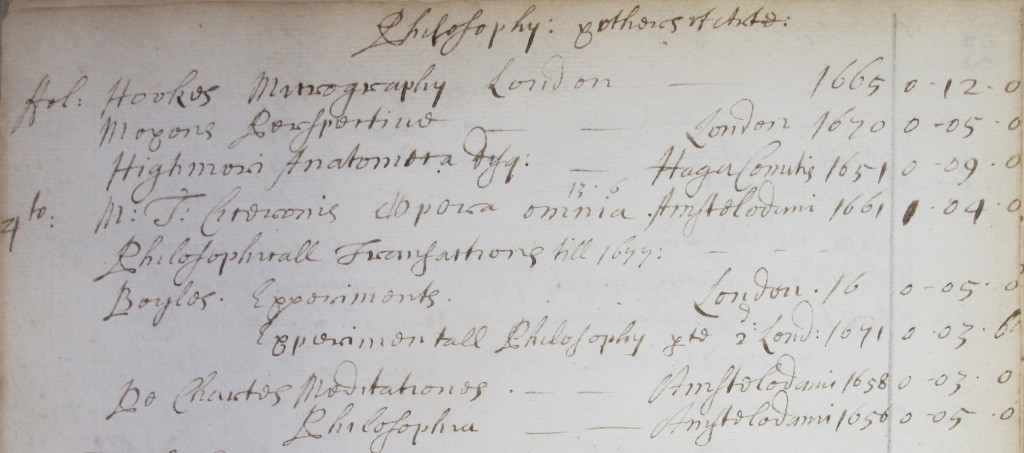 Philosophy: & others of Arte:
fol: Hookes Micrography London — 1665 0-12-0
Moxons Perspective — — London 1670 0-05-0
Highmori Anatomera — Haga Comitis 1651 0-09-0
13-6
4to: M: T: Ciceronis Opera omnia Amstelodami 1661 1-04-0
Philosophicall Transactions till 1677: — - - -
Boyles. Experiments. London. 16 0-05-0
Experimentall Philosophy pte 2d Lond: 1671 0-03-6
De Chartes Meditationes. — — Amstelodami 1658 0-03-0
Philosophia — — Amstelodami 1656 0-05-0